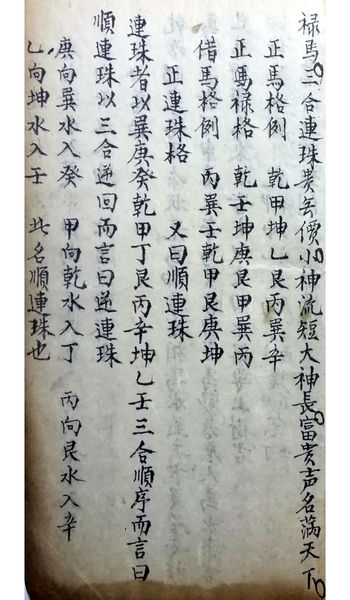 禄馬三合連珠貴無價小神流短大神長富貴声名滿天下
正馬格例 乾甲坤乙艮丙巽辛
正馬禄格 乾壬坤庚艮甲巽丙
借馬格例 丙巽壬乾甲艮庚坤
正連珠格 又曰順連珠
連珠者以巽庚癸乾甲丁艮丙辛坤乙壬三合順序而言曰
順連珠以三合逆回而言曰逆連珠
庚向巽水入癸 甲向乾水入丁 丙向艮水入辛
乙向坤水入壬 此名順連珠也